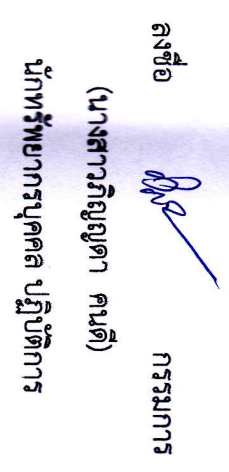 ลงชื่อ กรรมการ
(นางสาวภิญญดา คนดี)
นักทรัพยากรบุคคล ปฏิบัติการ